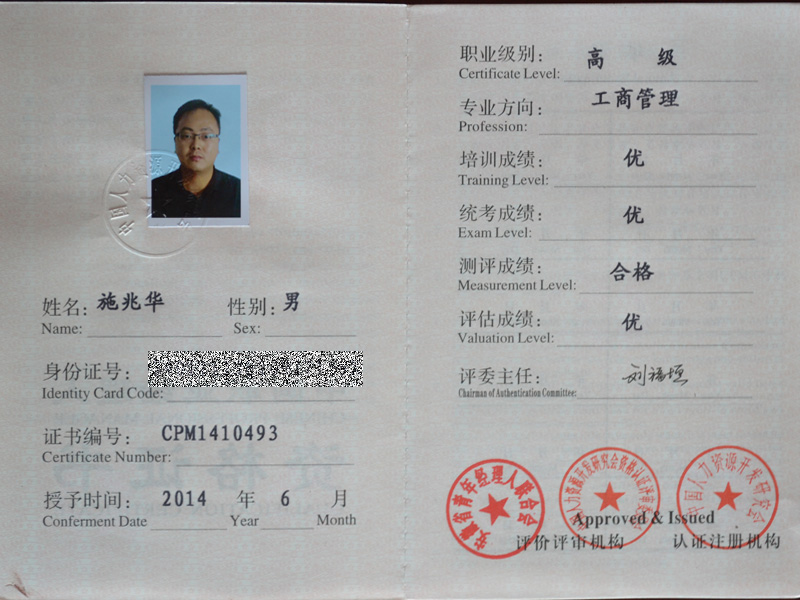 中国人力资源
姓名：施兆华 性别：男
Name: Sex:
身份证号：
Identity Card Code:
证书编号：CPM1410493
Certificate Number:
授予时间：2014 年 6 月
Conferment Date Year Month
职业级别：高 级
Certificate Level:
专业方向：工商管理
Profession:
培训成绩：优
Training Level:
统考成绩：优
Exam Level:
测评成绩：合格
Measurement Level:
评估成绩：优
Valuation Level:
评委主任：刘福垣
Chairman of Authentication Committee:
安徽省青年经理人联合会
中国人力资源开发研究会资格认证评审委员会
中国人力资源开发研究会
Approved & Issued
评价评审机构 认证注册机构